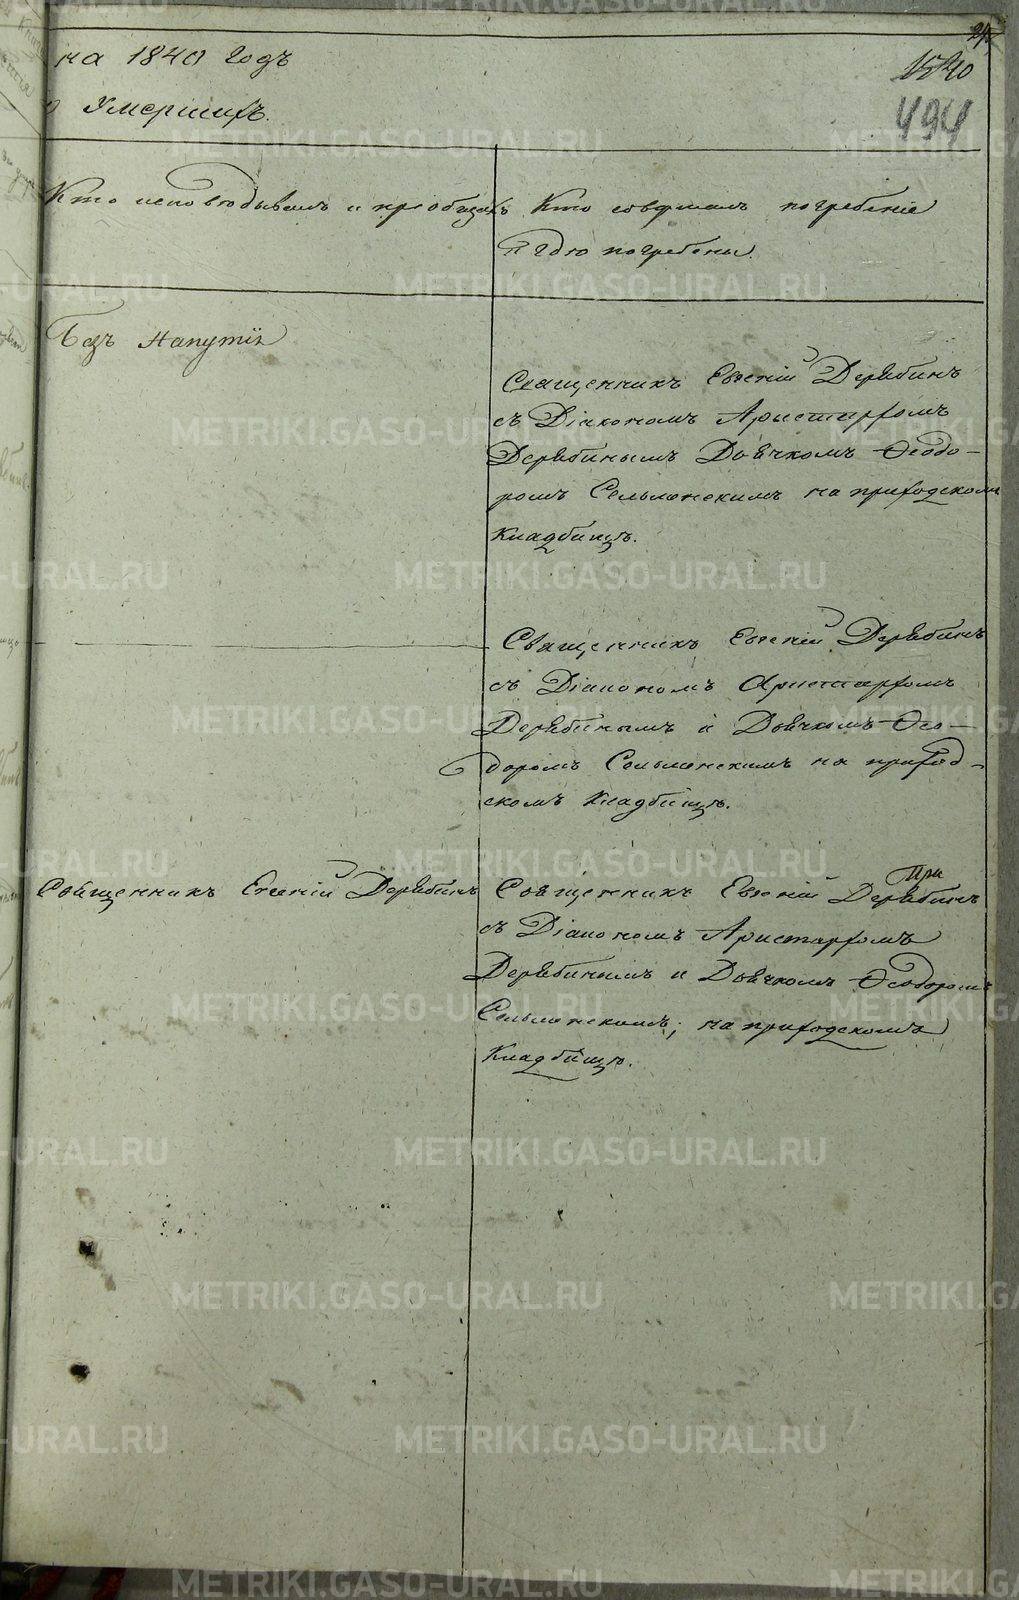 на 1840 Годъ
о Умершихъ.
494
Кто исповѣдывалъ и пріобщалъ
Кто совершалъ погребеніе
и гдѣ погребены.
Безъ Напутія
Священникъ Евгеній Дерябинъ
съ Діакономъ Аристархомъ
Дерябинымъ Дьячкомъ Ѳеодо-
ромъ Сельменскимъ на приходскомъ
Кладбищѣ.
Священникъ Евгеній Дерябинъ
съ Діакономъ Аристархомъ
Дерябинымъ и Дьячкомъ Ѳео-
доромъ Сельменскимъ на приход-
скомъ Кладбищѣ.
Священникъ Евгеній Дерябинъ
При
Священникъ Евгеній Дерябинъ
съ Діакономъ Аристархомъ
Дерябинымъ и Дьячкомъ Ѳеодоромъ
Сельменскимъ, на приходскомъ
Кладбищѣ.
METRIKI.GASO-URAL.RU